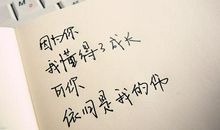 因为你
我懂得了成长
可你
依旧是我的你